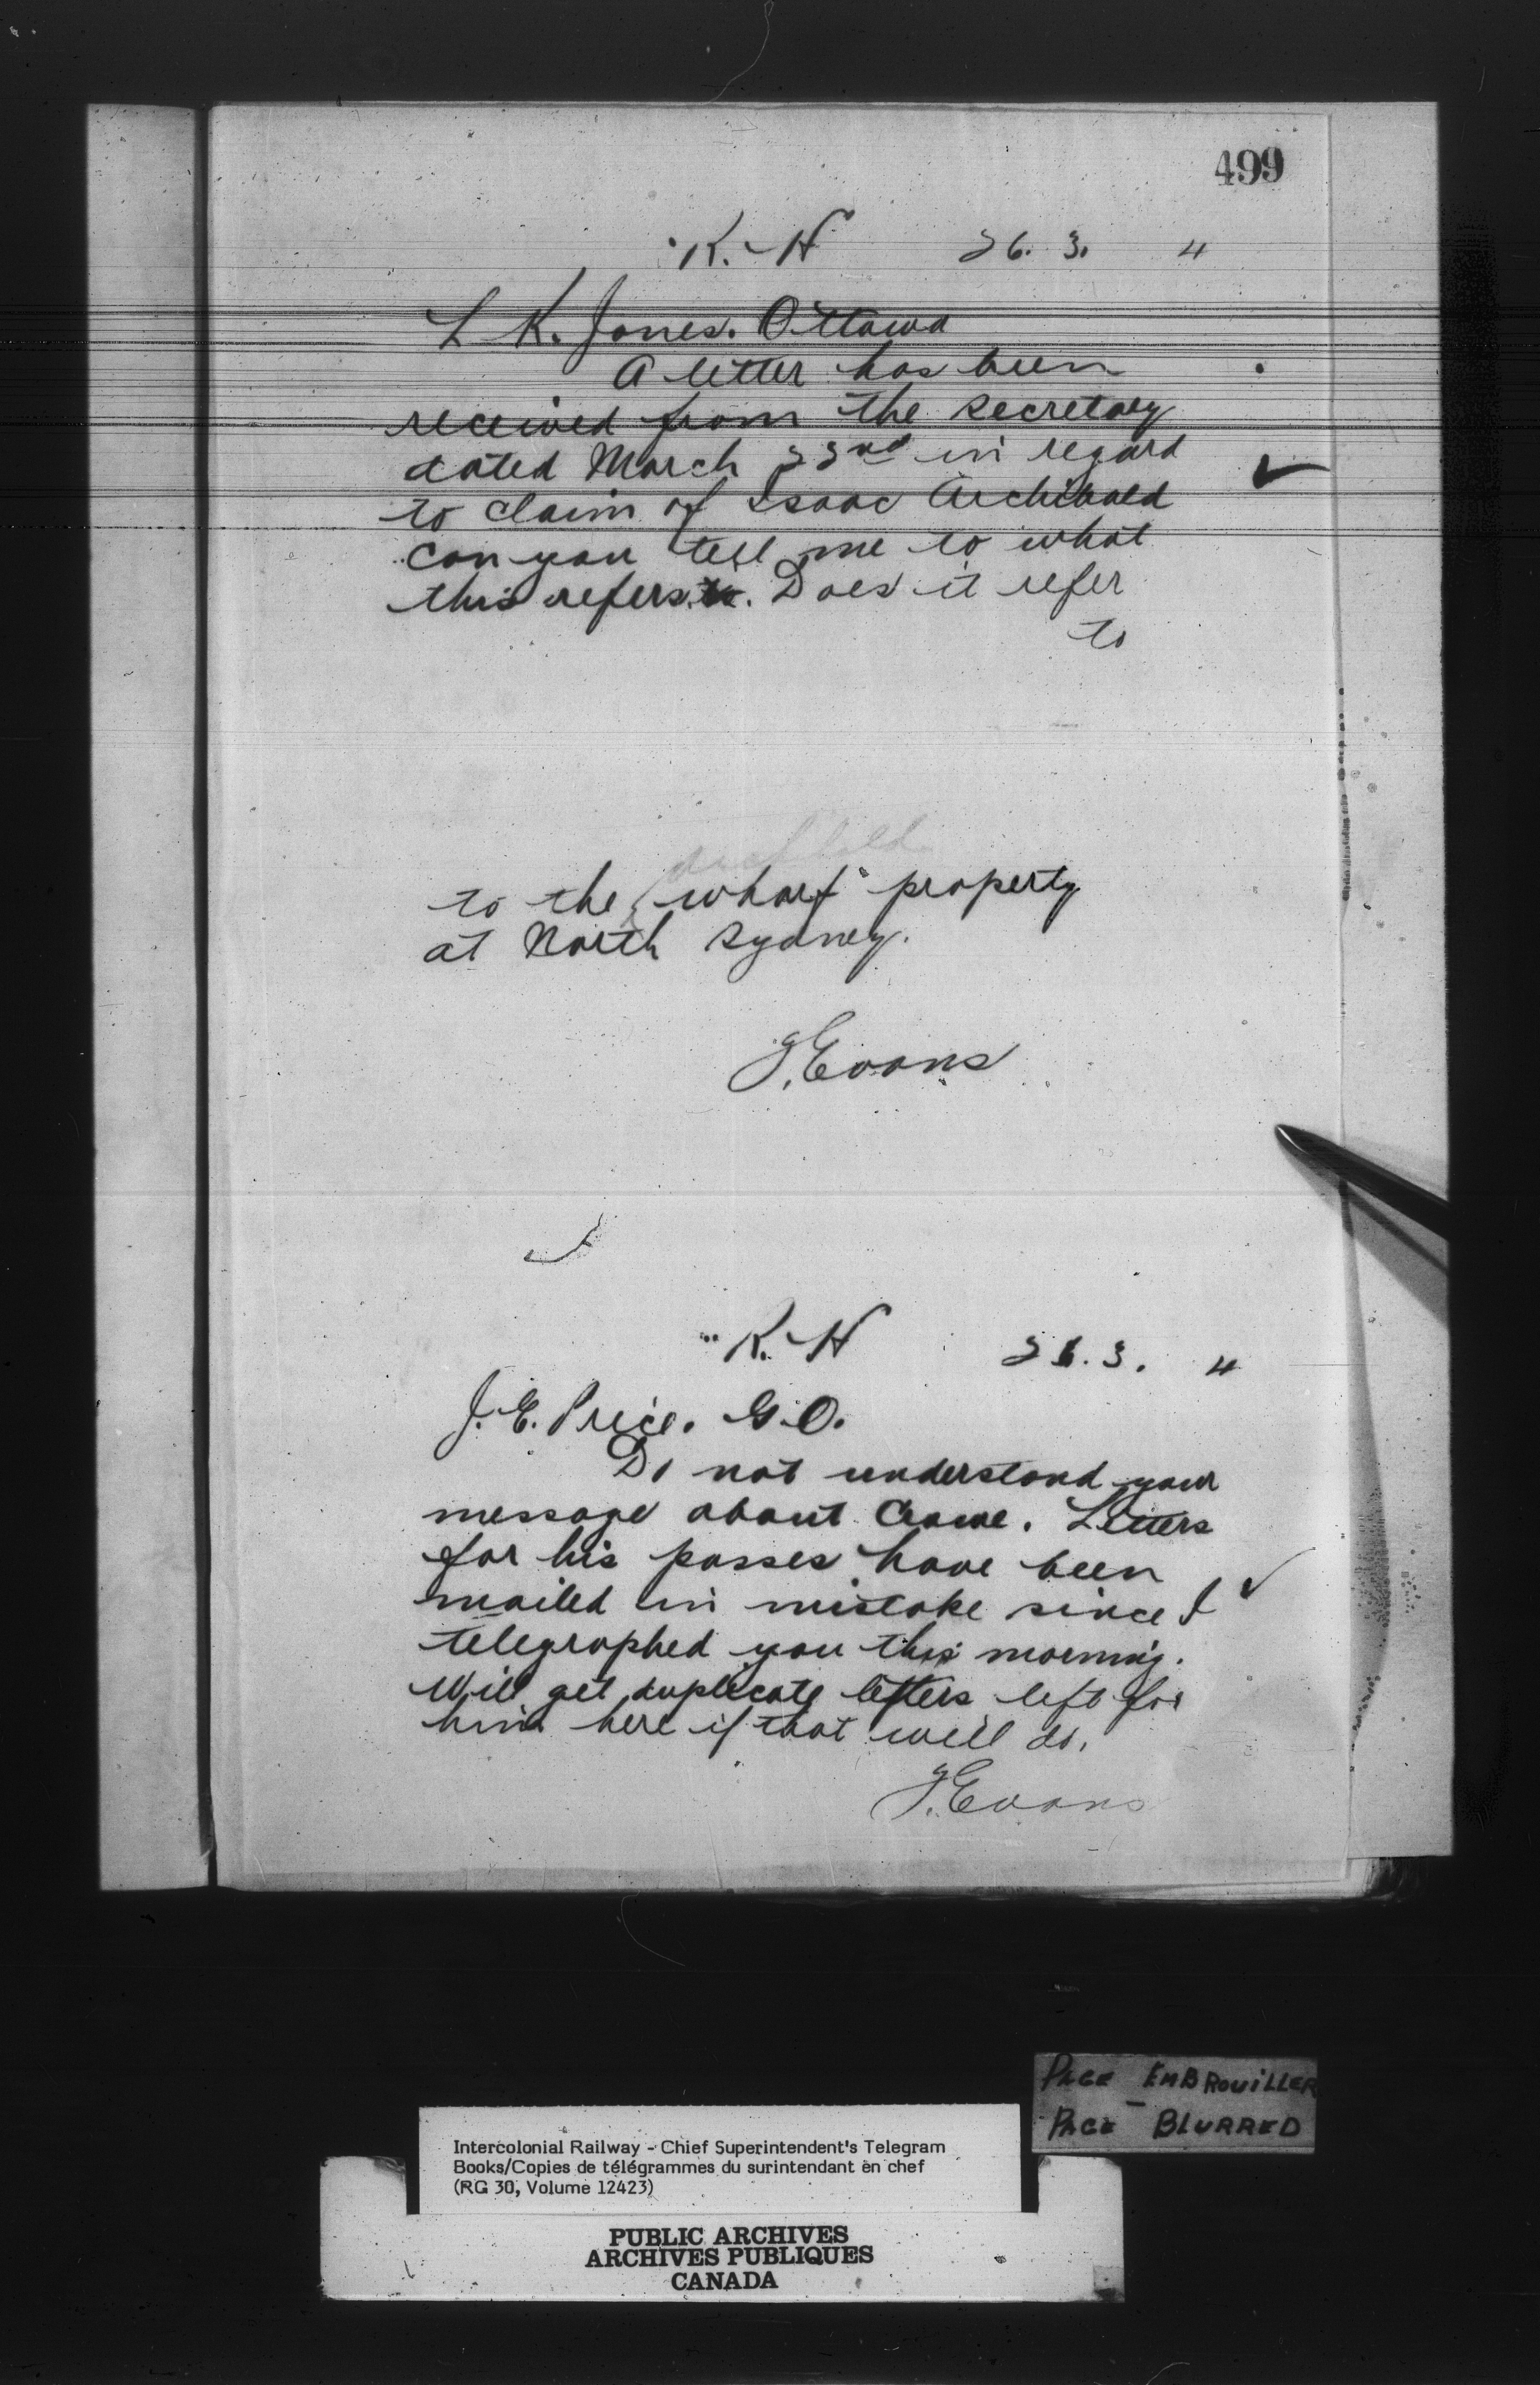 499
K. H 26. 3. 4
L K. Jones. Ottawa
A letter has been
received from the Secretary
dated March 22nd in regard
to claim of Isaac Archibald
can you tell me to what
this refers. Does it refer
to
to the wharf property
at North Sydney.
J. Evans
K. H 26. 3. 4
J. E. Price. G.O.
Do not understand your
message about Crowe. Letters
for his passes have been
mailed in mistake since I
telegraphed you this morning.
Will get duplicate letters left for
him here if that will do.
J. Evans
PAGE EMBROUILLER
PAGE BLURRED
Intercolonial Railway - Chief Superintendent's Telegram
Books/Copies de télégrammes du surintendant en chef
(RG 30, Volume 12423)
PUBLIC ARCHIVES
ARCHIVES PUBLIQUES
CANADA